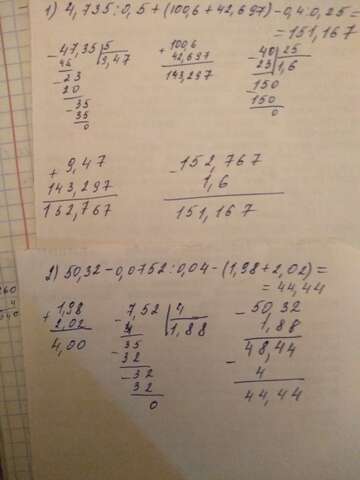 1) 4,735:0,5+(100,6+42,697)-0,4:0,25=
=151,167
- 47,35 | 5
45 | 9,47
- 23
20
- 35
35
0
+ 100,6
42,697
143,297
- 40 | 25
25 | 1,6
- 150
150
0
+ 9,47
143,297
152,767
- 152,767
1,6
151,167
2) 50,32-0,0752:0,04-(1,98+2,02)=
=44,44
+ 1,98
2,02
4,00
- 7,52 | 4
4 | 1,88
- 35
32
- 32
32
0
- 50,32
1,88
48,44
- 4
44,44